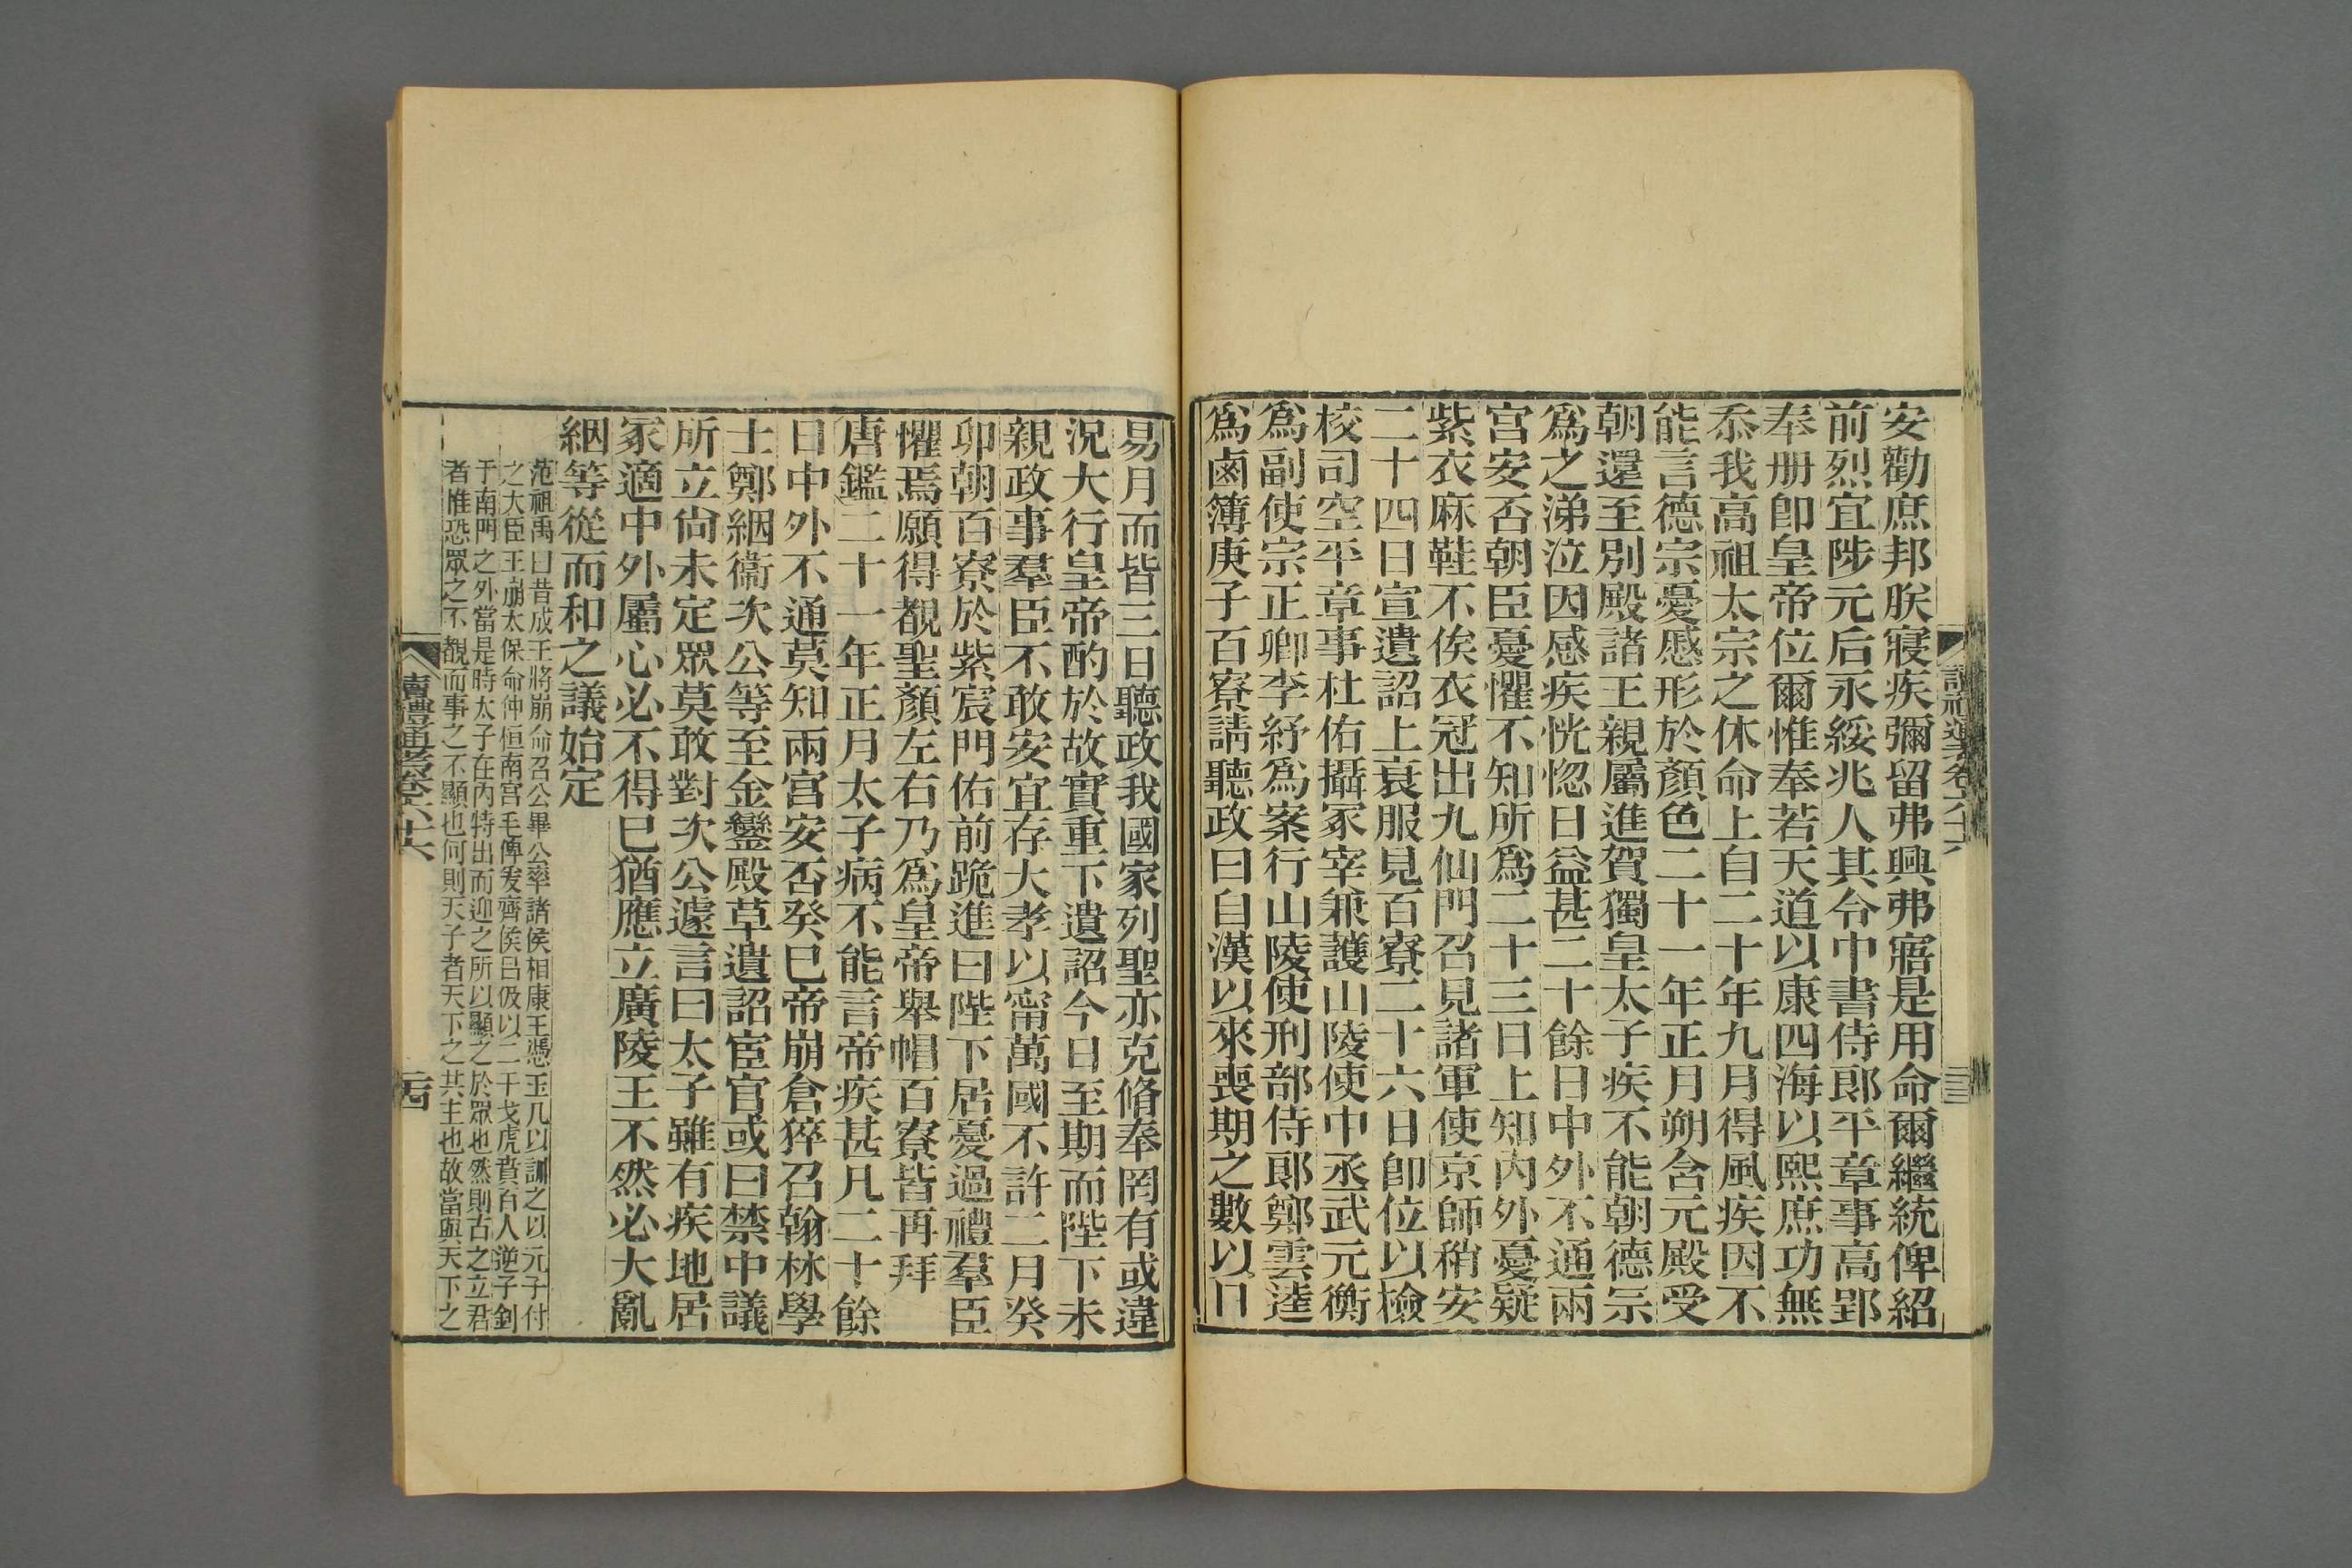 安勸庶邦朕寢疾彌留弗興弗寤是用命爾繼統俾紹
前烈宜陟元后永綏兆人其令中書侍郎平章事高郢
奉册卽皇帝位爾惟奉若天道以康四海以熙庶功無
忝我高祖太宗之休命上自二十年九月得風疾因不
能言德宗憂慼形於顏色二十一年正月朔含元殿受
朝還至別殿諸王親屬進賀獨皇太子疾不能朝德宗
爲之涕泣因感疾恍惚日益甚二十餘日中外不通兩
宮安否朝臣憂懼不知所爲二十三日上知內外憂疑
紫衣麻鞋不俟衣冠出九仙門召見諸軍使京師稍安
二十四日宣遺詔上衰服見百寮二十六日卽位以檢
校司空平章事杜佑攝冢宰兼護山陵使中丞武元衡
爲副使宗正卿李紓爲案行山陵使刑部侍郎鄭雲逵
爲鹵簿庚子百寮請聽政曰自漢以來喪期之數以日
易月而皆三日聽政我國家列聖亦克脩奉罔有或違
況大行皇帝酌於故實重下遺詔今日至期而陛下未
親政事羣臣不敢安宜存大孝以甯萬國不許二月癸
卯朝百寮於紫宸門佑前跪進曰陛下居憂過禮羣臣
懼焉願得覩聖顏左右乃爲皇帝舉帽百寮皆再拜
唐鑑二十一年正月太子病不能言帝疾甚凡二十餘
日中外不通莫知兩宮安否癸巳帝崩倉猝召翰林學
士鄭絪衞次公等至金鑾殿草遺詔宦官或曰禁中議
所立尙未定眾莫敢對次公遽言曰太子雖有疾地居
冢適中外屬心必不得巳猶應立廣陵王不然必大亂
絪等從而和之議始定
范祖禹曰昔成王將崩命召公畢公率諸侯相康王憑玉几以訓之以元子付
之大臣王崩太保命仲恒南宮毛俾爰齊侯呂伋以二干戈虎賁百人逆子釗
于南門之外當是時太子在內特出而迎之所以顯之於眾也然則古之立君
者惟恐眾之不覩而事之不顯也何則天子者天下之共主也故當與天下之
讀禮通考卷六十六
二十四